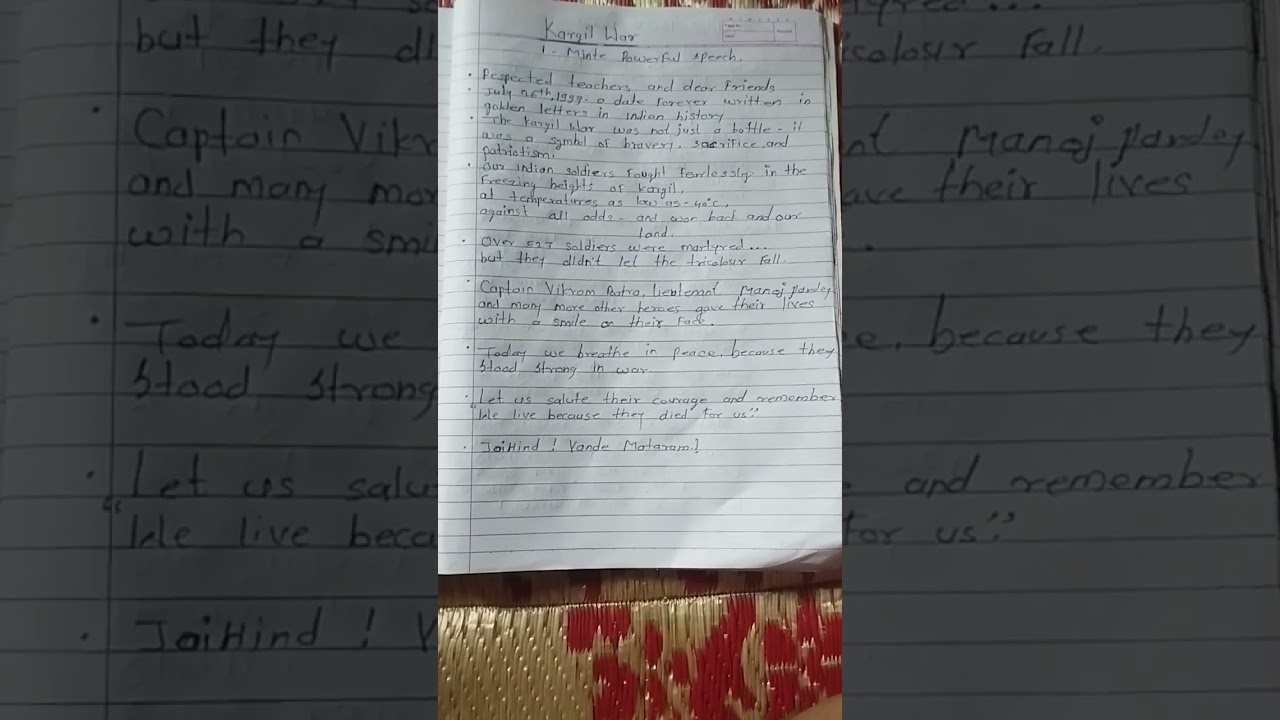 Kargil War
1 - Minte Powerful speech.
• Respected teachers and dear Friends
• July 26th, 1999 - a date Forever written in
golden letters in Indian history
• The Kargil War was not just a battle - it
was a symbol of bravery, sacrifice and
patriotism.
• Our Indian soldiers Fought Fearlessly in the
Freezing heights of Kargil,
at temperatures as low as -40°C,
against all odds - and won back and our
land.
• Over 527 soldiers were martyred...
but they didn't let the tricolour Fall.
Captain Vikram Batra, Lieutenant Manoj Pandey
and many more other heroes gave their lives
with a smile on their Face.
• Today we breathe in peace, because they
stood strong in war.
• Let us salute their courage and remember
"We live because they died for us."
• JaiHind ! Vande Mataram!